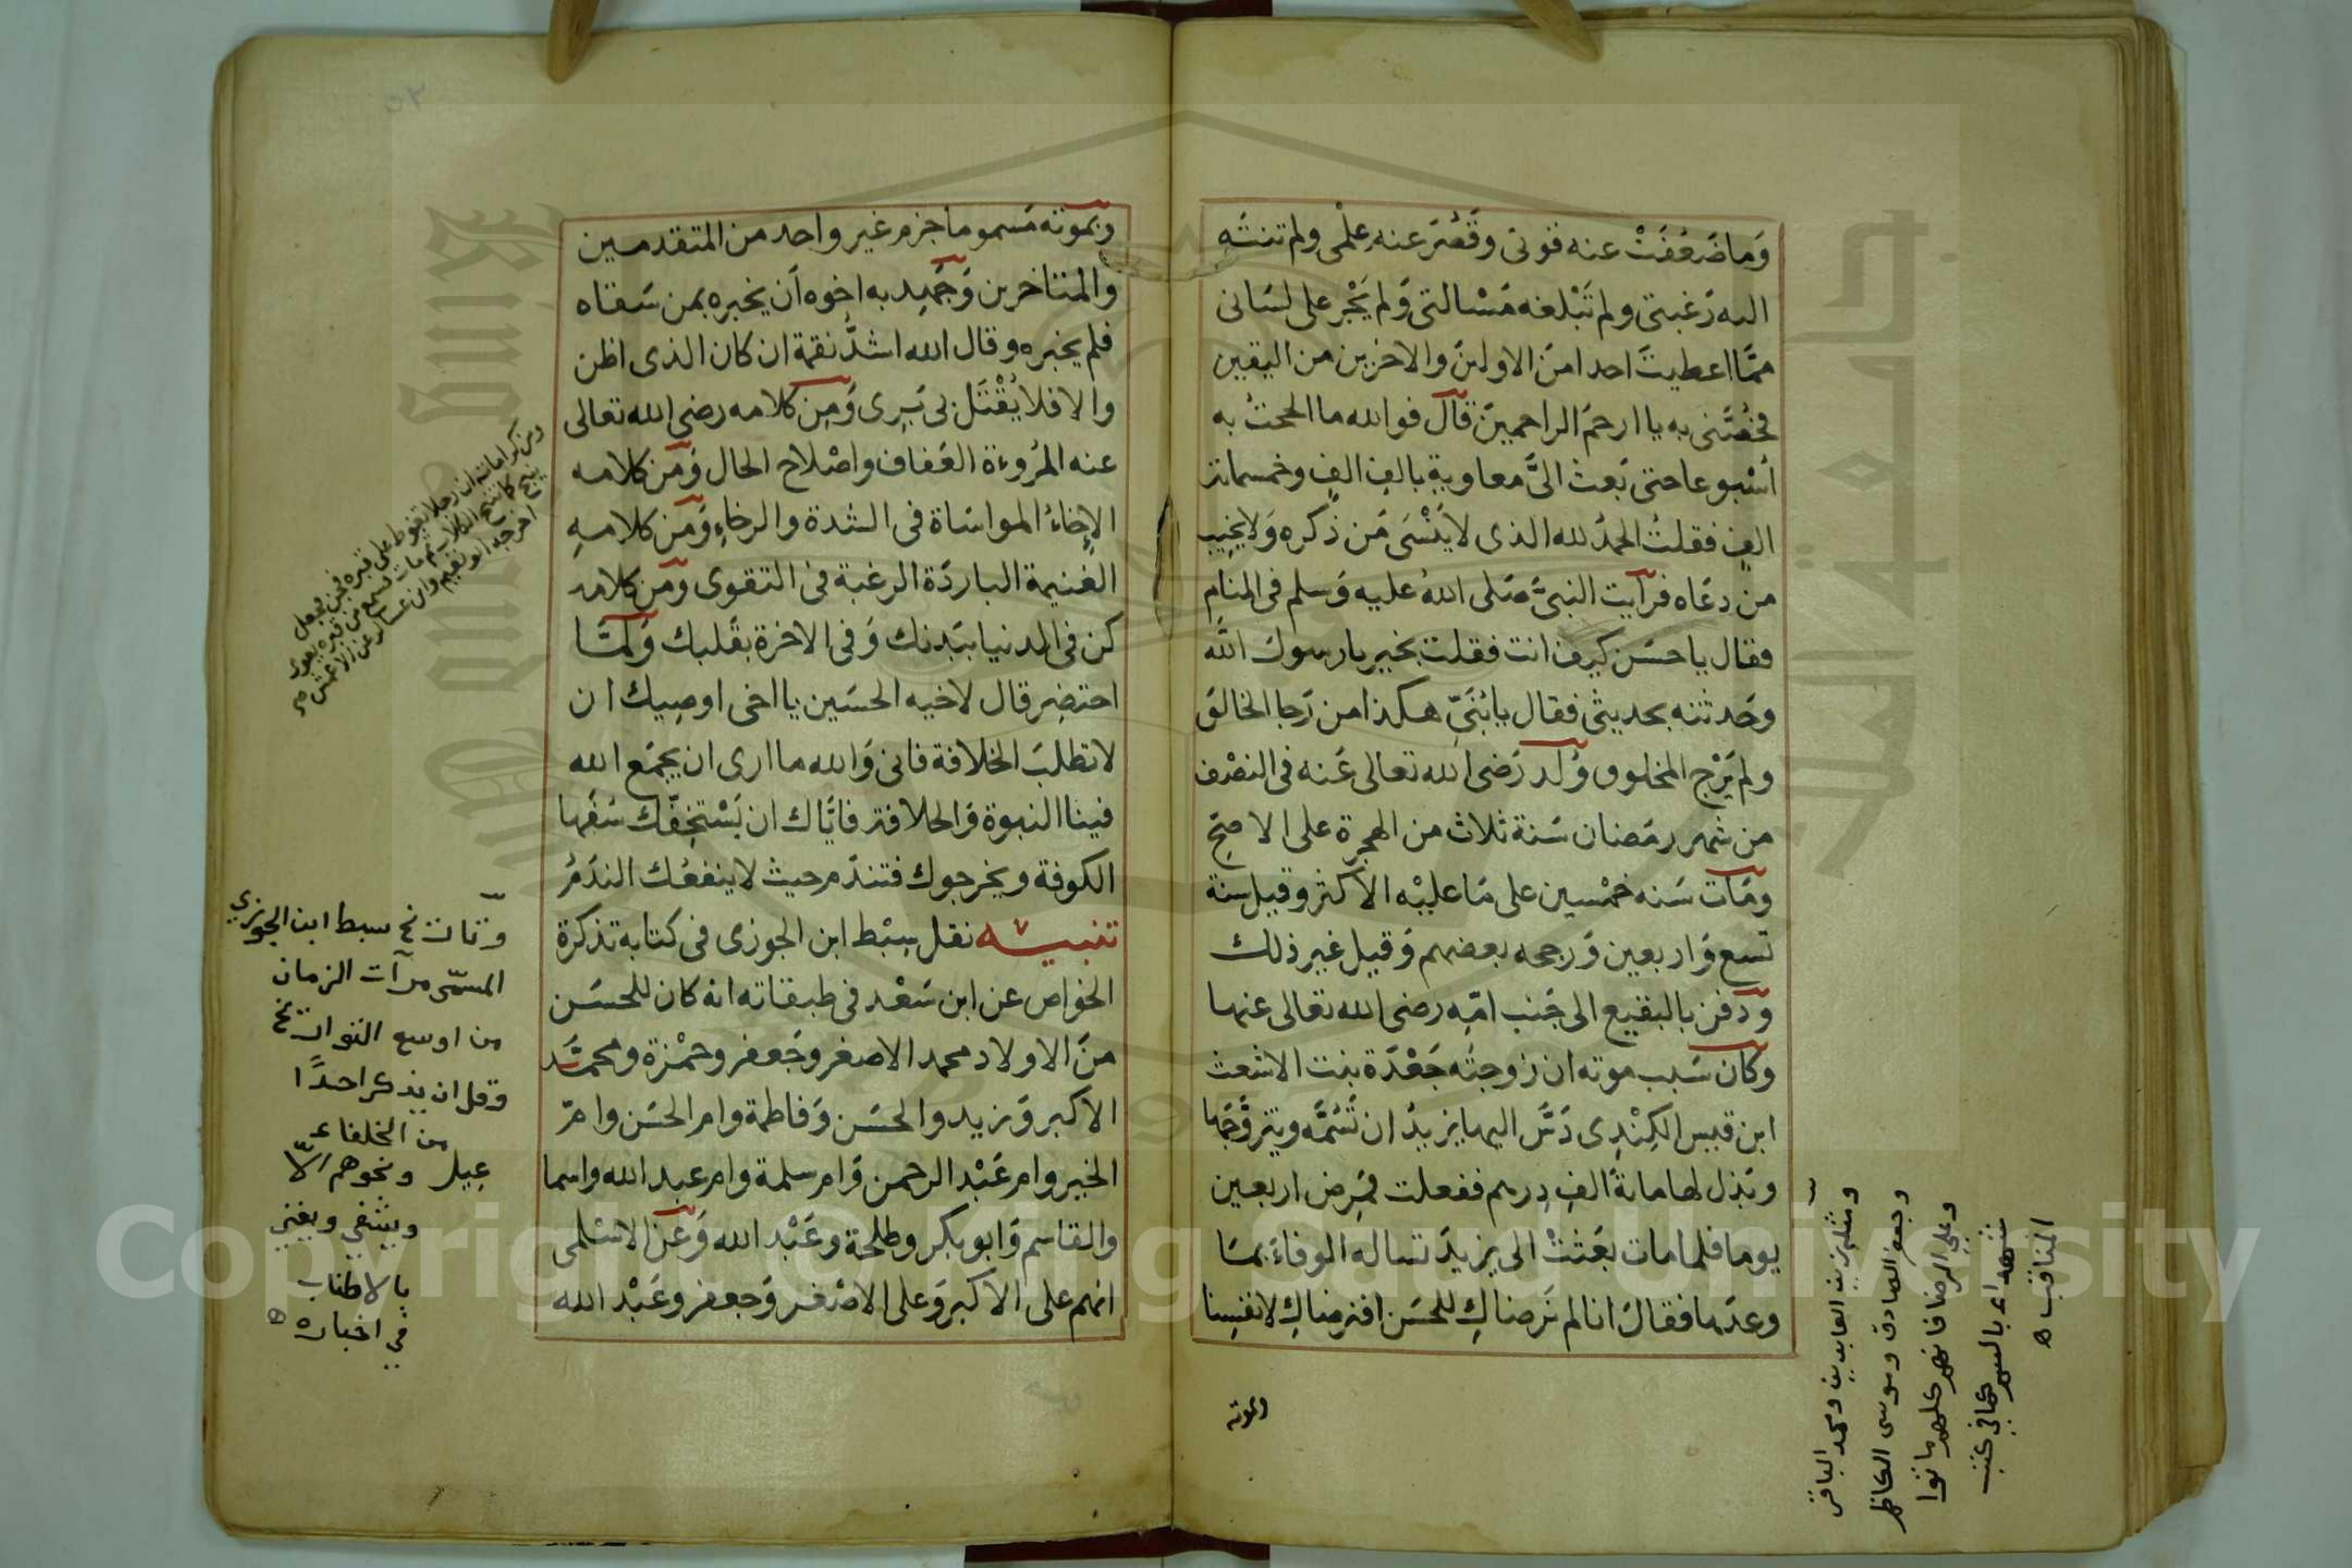 وَما ضَعُفَتْ عنه قوتى وقَصُرَ عنه عِلْمى ولم تنته
اليه رَغبتى ولم تَبْلغه مَسْالتى وَلم يَجْر على لسَانى
ممَّا اعطيتَ احدا منَ الاولينَ والاخرين من اليقين
فخُصَّنى به يا ارحمَ الراحمينَ قال فوالله ما الححتُ به
اُسْبوعا حتى بَعث الىَّ معاوية بالفِ الفٍ وخمسمائة
الفٍ فقلتُ الحمدُ لله الذى لا يَنْسَى مَن ذكره وَلا يخيب
من دعَاه فرآيت النبىَّ صَلى اللهُ عليه وَسلم فى المنام
فقال يا حسَن كيف انت فقلت بخير يا رسولَ الله
وحَدثته بحديثى فقال يا بُنَىِّ هكذا من رَجا الخالقَ
ولم يَرْج المخلوق وُلد رَضى الله تعالى عَنه فى النصْف
من شهر رمَضان سَنة ثلاث من الهجرة على الاصحِّ
ومَات سَنه خمْسين على مَا عليْه الاكثر وقيل سنة
تسع وَاربعين وَرجحه بعضهم وَقيل غير ذلك
ودَفن بالبقيع الى جَنب امّه رضى الله تعالى عنها
وكان سَبب موته ان زوجتَه جَعْدَة بنت الاشعث
ابن قيس الكِنْدِى دَسَّ اليها يزيدُ ان تَسُمَّه ويتزوَّجَها
وبَذل لها مائةَ الفِ دِرهم ففعلت فمَرِض اربعين
يوما فلما مات بعَثتْ الى يزيدَ تساله الوفاءَ بمَا
وعدَها فقال انا لم نَرضاكِ للحسَن افنرضاكِ لانفسِنا
وبموته
ومثله زين العابدين ومحمد الباقر
وجعفر الصادق وموسى الكاظم
وعلي الرضا فانهم كلهم ماتوا
شهداء بالسم كما في كتب
المناقب ه
وبموته مَسموما جزم غير واحد من المتقدمين
والمتاخرين وَجَهِد به اخوه اَن يخبره بمن سَقاه
فلم يخبره وقال الله اشدُّ نقمة ان كان الذى اظن
والا فلا يُقْتَل بى بَرِى وَمِن كلامه رضى الله تعالى
عنه المرُوءة العَفاف واصْلاح الحال وَمن كلامه
الاِخاءُ المواسَاة فى الشدة والرخاءِ وَمن كلامهِ
الغنيمة الباردَة الرغبة فى التقوى ومَن كلامه
كن فى الدنيا ببَدنك وَفى الاخرة بقَلبك وَلمَّا
احتضِر قال لاخيه الحسَين يا اخى اوصِيك ان
لا تطلبَ الخلافة فانى وَالله ما ارى ان يجمَع الله
فينا النبوة وَالخلافة فايَّاك ان يَسْتخِفّك سَفَها
الكوفة ويخرجوك فتندَم حيث لا ينفعُك الندَمُ
تنبيـه نقل سِبْط ابن الجوزى فى كتابه تذكرة
الخواص عن ابن سَعْد فى طبقاته انه كان للحسَن
منَ الاولاد محمد الاصغر وجَعفر وحمْزة ومحمَّد
الاكبر وَزيد والحسَن وَفاطمة وام الحسَن وامّ
الخير وام عَبْد الرحمن وَام سلمة وام عبد الله واسما
والقاسم وَابو بكر وطلحة وعَبْد الله وَعن الاسْلمى
انهم على الاكبر وَعلى الاصْغر وَجعفر وعَبْد الله
ومن كراماته ان رجلا تغوط على قبره فجن فجعل
ينبح كما تنبح الكلاب ثم مات فسمع من قبره يعوى
اخرجه ابو نعيم وابن عساكر عن الاعمش
وتاريخ سبط ابن الجوزي
المسمّى مرآت الزمان
من اوسع التواريخ
وقل ان يذكر احدًا
من الخلفاء
ونحوهم الا
ويشفي ويغني
بالاطناب
في اخباره
Copyright © King Saud University